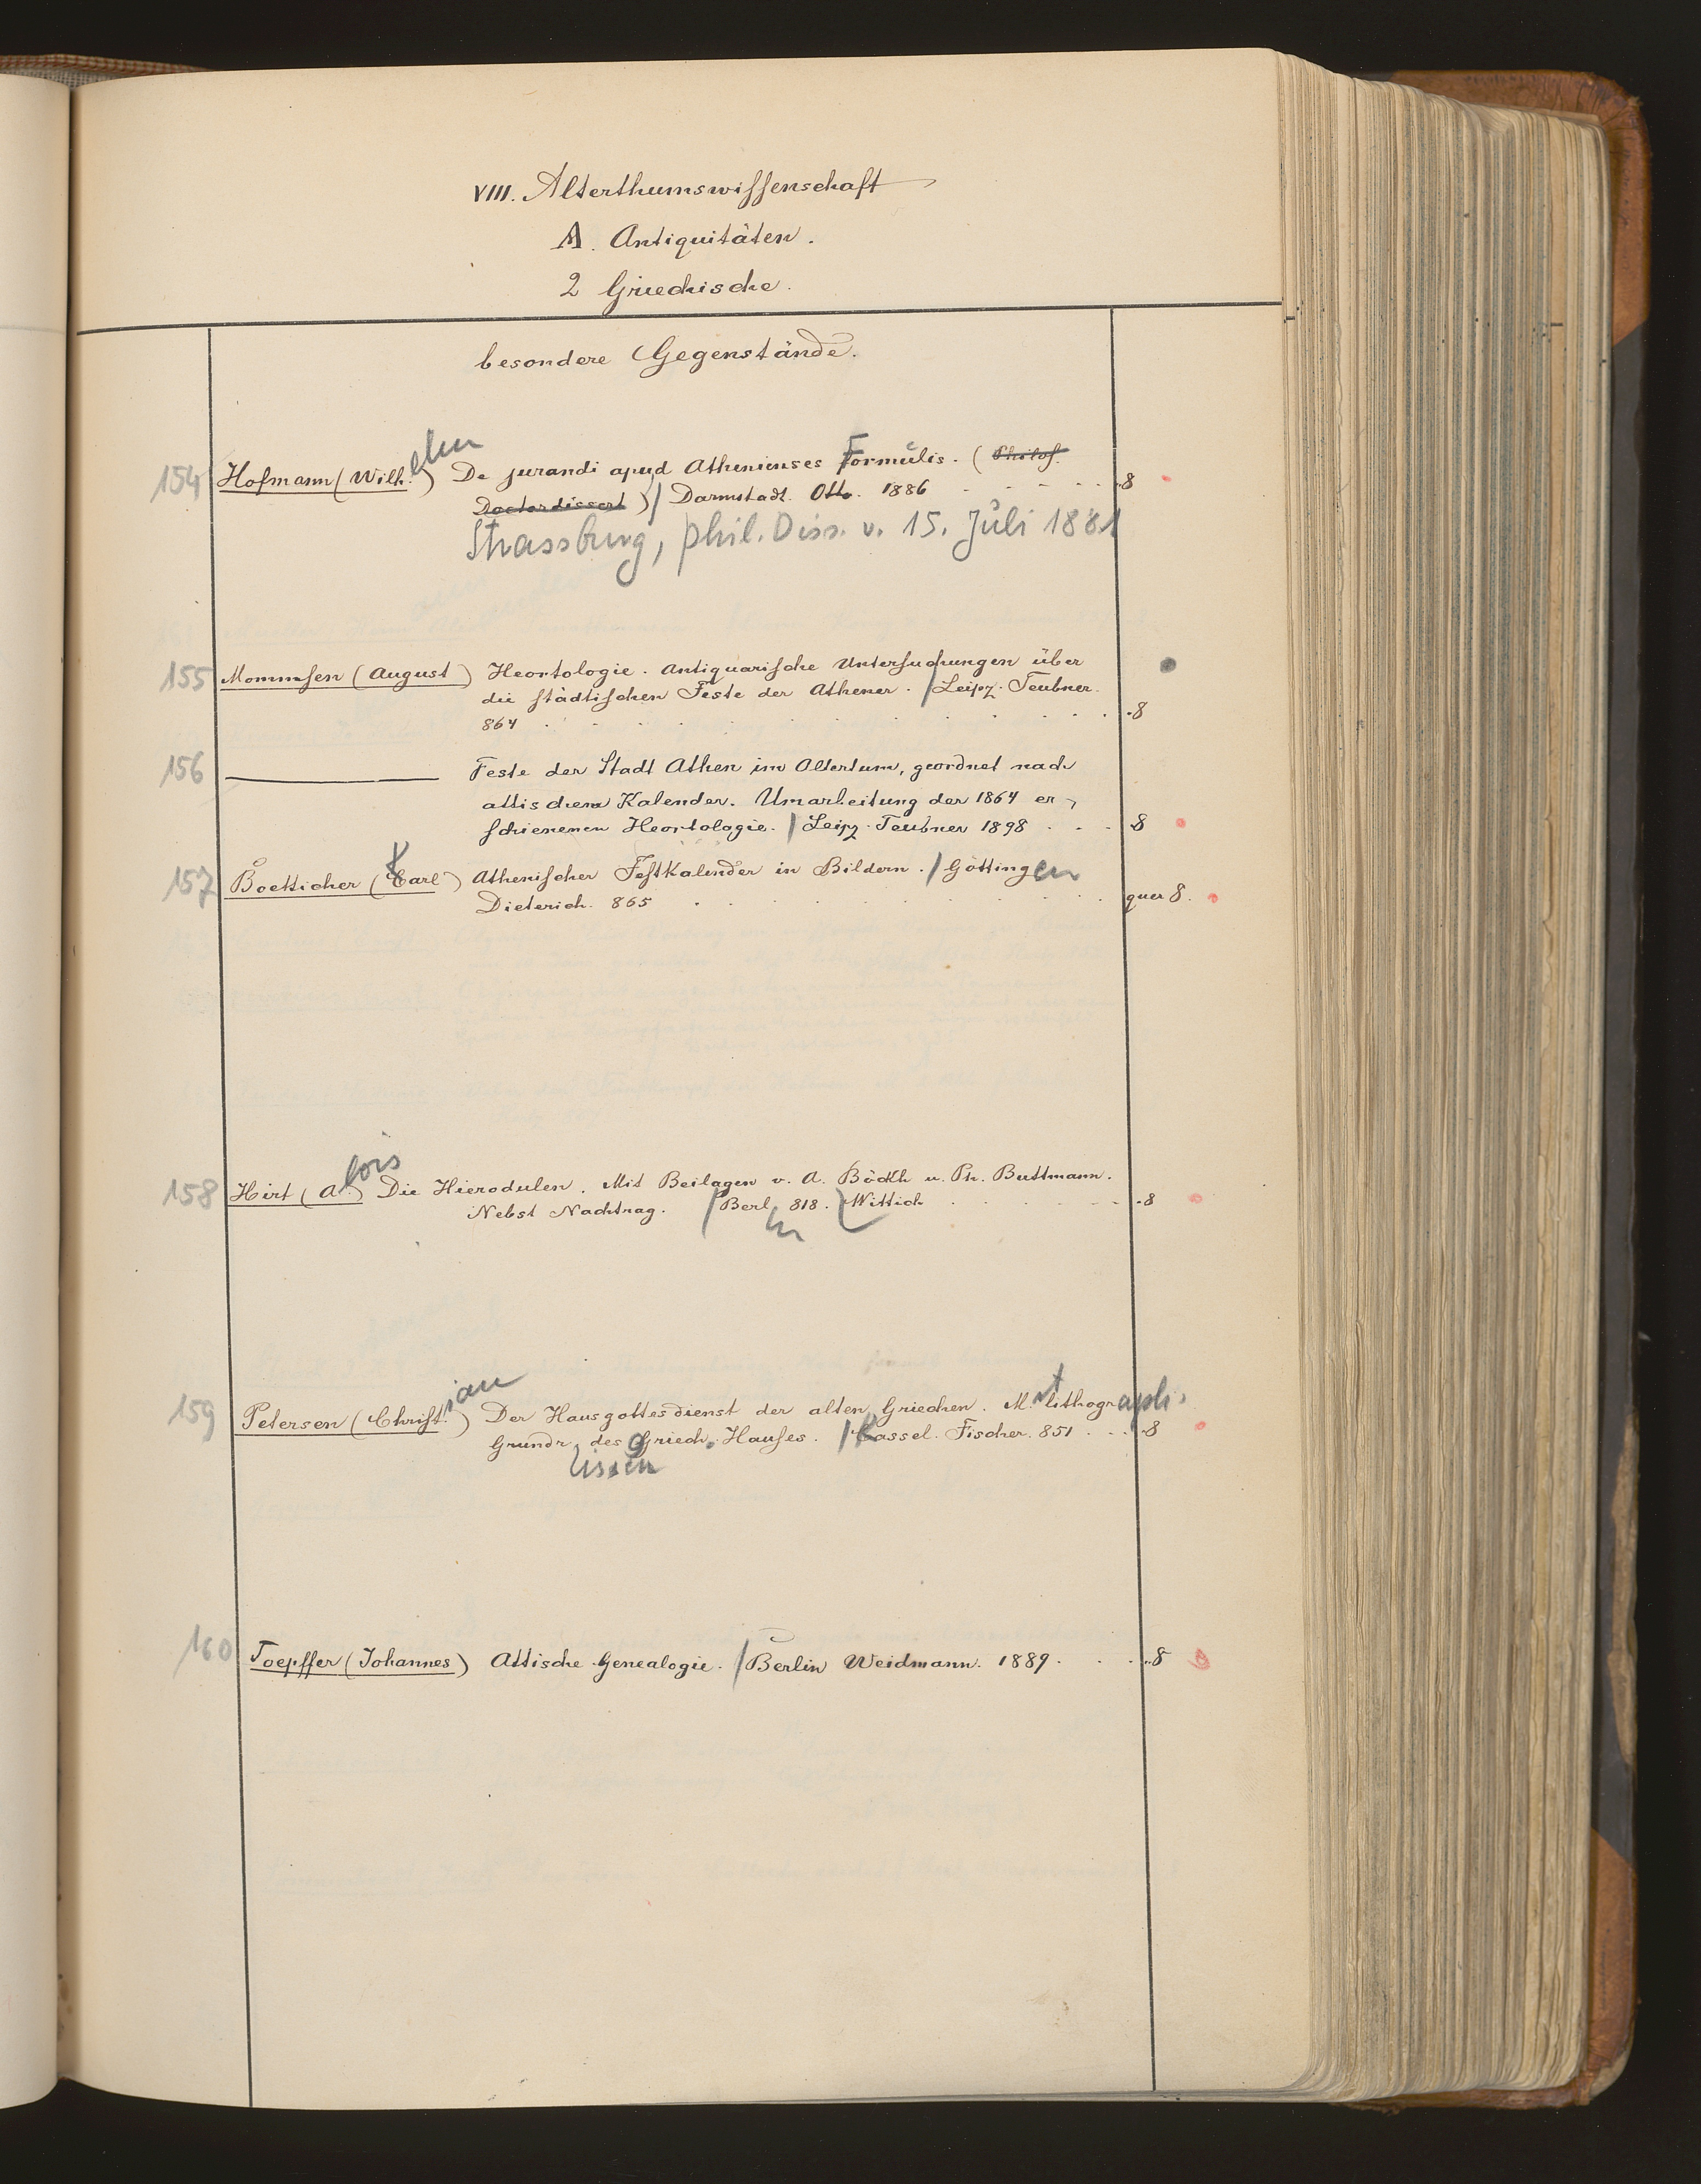 VIII. Alterthumswissenschaft
A. Antiquitäten.
2 Griechische.
besondere Gegenstände.
154 Hofmann (Wilh.elm) De jurandi apud Athenienses Formulis. (Philos. 8
Doctordissert)/ Darmstadt. Otto. 1886
Strassburg, phil. Diss. v. 15. Juli 1881
155 Mommsen (August) Heortologie. Antiquarische Untersuchungen über
die städtischen Feste der Athener. / Leipz. Teubner.
864 8
156 Feste der Stadt Athen im Altertum, geordnet nach
attischem Kalender. Umarbeitung der 1864 er-
schienenen Heortologie. / Leipz. Teubner 1898 8
157 Boetticher (Karl) Athenischer Festkalender in Bildern. / Göttingen
Dieterich. 865 quer 8.
158 Hirt (Alois) Die Hierodulen. Mit Beilagen v. A. Böckh u. Ph. Buttmann.
Nebst Nachtrag. / Berlin 818. Wittich 8
159 Petersen (Christian) Der Hausgottesdienst der alten Griechen. Mit lithograph.
Grundr. des griech. Hauses. / Kassel. Fischer. 851 8
160 Toepffer (Johannes) Attische Genealogie. / Berlin Weidmann. 1889. 8